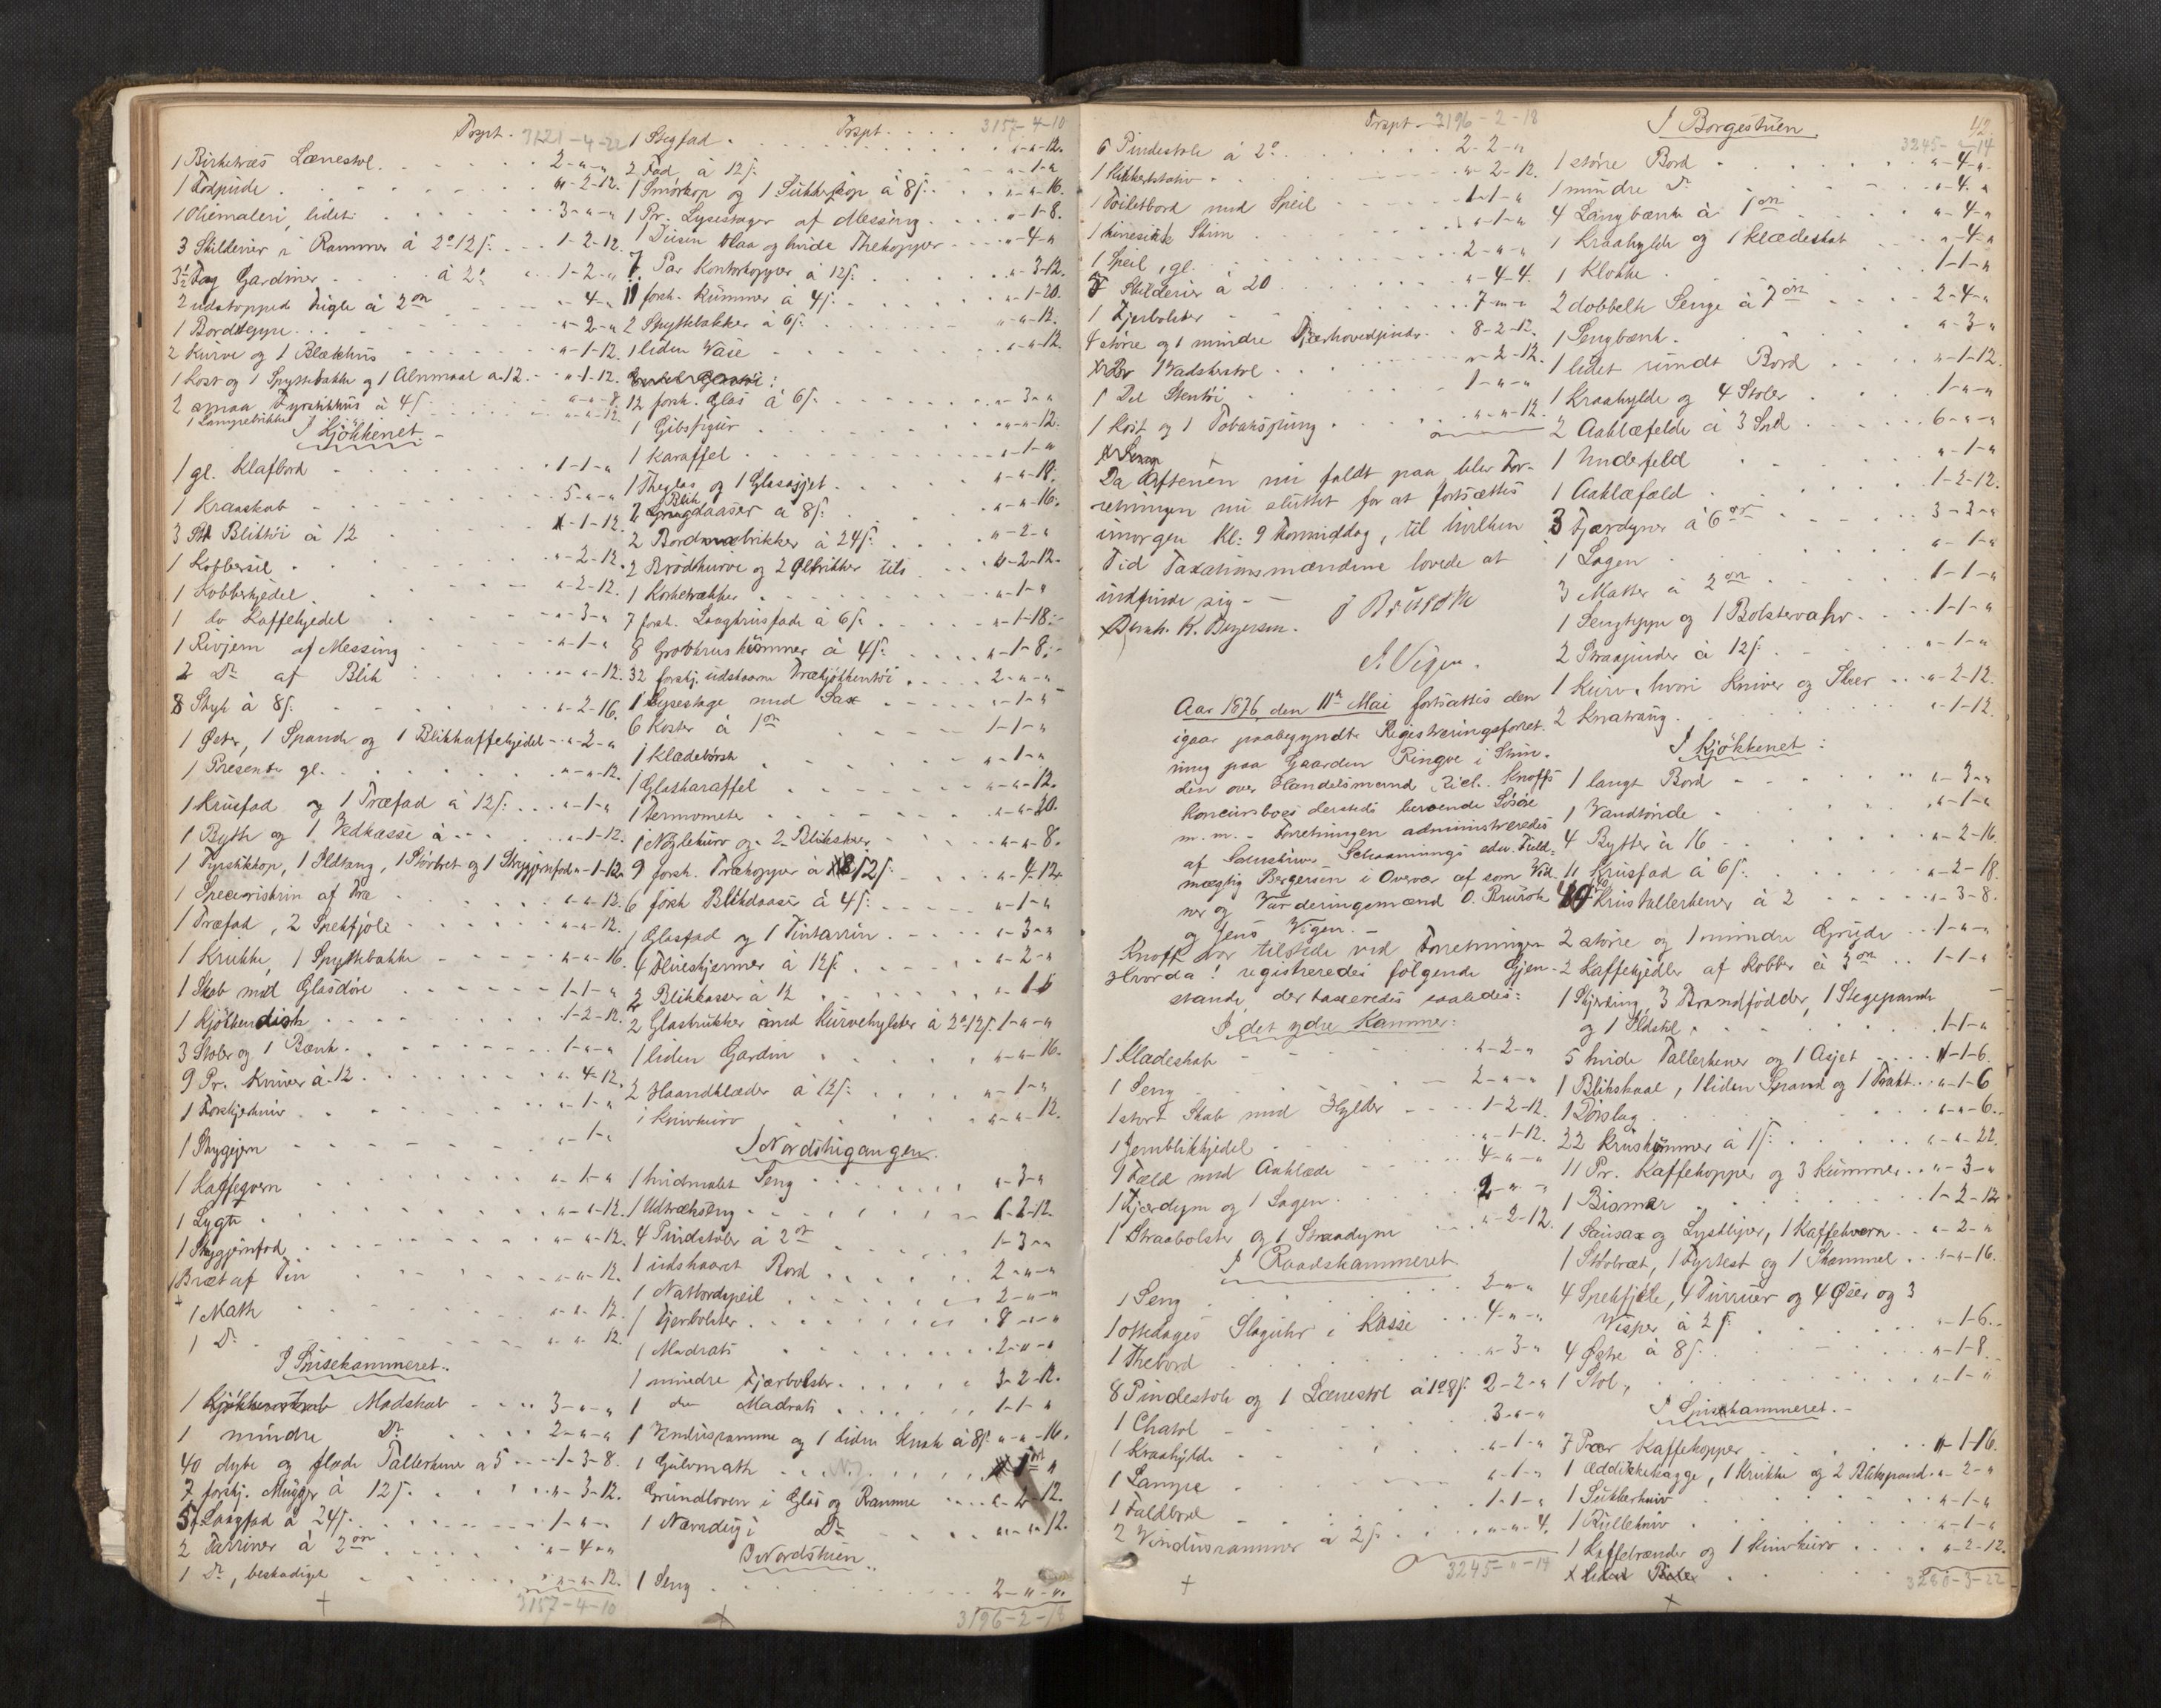 Trspt. 3121-4-22
1 Birketræs Lænestol 2-"-"
1 Fodpude "-2-12.
1 Oliemaleri, lidet 3-"-"
3 Skilderier i Rammer à 2°12ſ. 1-2-12.
3½ Fag Gardiner à 2° 1-2-"
2 udstoppede Fugle à 2 ort "-4-"
1 Bordteppe "-2-"
2 Kurve og 1 Blækhus "-1-12.
1 Kost og 1 Spyttebakke og 1 Alnmaal a 12. "-1-12.
2 smaa Fyrstikhus à 4ſ "-"-8.
1 Lampebrikke "-"-12.
I Kjøkkenet
1 gl. Klafbord 1-1-"
1 Kraaskab 5-"-"
3 Stk Bliktøi à 12 "-1-12.
1 Kobbersil "-2-12.
1 Kobberkjedel "-2-12.
1 do Kaffekjedel "-3-"
1 Rivjern af Messing "-1-"
2 Do af Blik "-"-12.
8 Stryk à 8ſ. "-2-16.
1 Øse, 1 Spand og 1 Blikkaffekjedel "-2-"
1 Presente gl. "-"-12.
1 Krusfad og 1 Træfad à 12ſ. "-1-"
1 Bytte og 1 Vedkasse à "-1-12.
1 Fyrstikkop, 1 Ildtang, 1 Støvbret og 1 Strygjernfod "-1-12.
1 Speceriskrin af Træ "-"-12.
1 Træfad, 2 Spekfjøle "-"-12.
1 Krukke, 1 Spyttebakke "-"-16.
1 Skab med Glasdøre 1-1-"
1 Kjøkkendisk 1-2-12.
3 Stoler og 1 Bænk 1-"-"
9 Pr. Kniver à 12 "-4-12.
1 Forskjerkniv "-1-"
1 Strygejern "-1-"
1 Kaffeqvern "-1-"
1 Lygte "-"-12.
1 Strygjernfod "-"-12.
1 Bræt af Tin "-"-12.
1 Matte "-"-12.
1 Do "-"-12.
I Spisekammeret.
1 Madskab 3-"-"
1 mindre Do 2-"-"
40 dybe og flade Tallerkener a 5 1-3-8.
7 forskj. Mugger à 12ſ. "-3-12.
5 Langfad a 24ſ. 1-"-"
2 Tarriner à 2 ort "-4-"
1 Do, beskadiget "-"-12.
3157-4-10
Trspt. 3157-4-10
1 Stegfad "-"-12.
2 Fad à 12ſ. "-1-"
1 Smørkop og 1 Sukkerkop à 8ſ. "-"-16.
1 Pr. Lysestager af Messing "-1-8.
1 Dusin blaa og hvide Thekopper "-4-"
7 Par Kontorkopper à 12ſ. "-3-12.
11 forsk. Kummer à 4ſ. "-1-20.
2 Spyttebakker à 6ſ. "-"-12.
1 liden Vase "-"-12.
12 forsk. Glas à 6ſ. "-3-"
1 Gibsfigur "-"-12.
1 Karaffel "-1-"
1 Theglas og 1 Glasasjet "-"-18.
2 Blikdaaser à 8ſ. "-"-16.
2 Bordbrikker à 24ſ. "-2-"
2 Brødkurve og 2 Ølbrikker tils. "-2-12.
1 Korketrækker "-1-"
7 forsk. Langkrusfade à 6ſ. "-1-18.
8 Grovkruskummer à 4ſ. "-1-8.
32 forskj. udskaarne Trækjøkkentøi 2-"-"
1 Lysestage med Sax "-1-"
6 Koster à 1 ort 1-1-"
1 Klædebørste "-1-"
1 Glaskaraffel "-"-12.
1 Termometer "-"-20.
1 Nøglekurv og 2 Blikæsker "-"-8.
9 forsk. Trækopper à 12ſ. "-4-12.
6 forsk Blikdaaser à 4ſ. "-1-"
1 Glasfad og 1 Tintarrin "-3-"
4 Flueskjermer à 12ſ. "-2-"
2 Blikkasser à 12 "-1-"
2 Glaskrukker med Kurvehylster à 2°12ſ. 1-"-"
1 liden Gardin "-"-16.
2 Haandklæder à 12ſ. "-1-"
1 Knivkurv "-"-12.
I Nordstugangen.
1 hvidmalet Seng "-3-"
1 Udtrækseng 1-2-12.
4 Pindstoler à 2 ort 1-3-"
1 udskaaret Bord 2-"-"
1 Natbordspeil 2-"-"
1 Fjerbolster 8-"-"
1 Madrats 2-"-"
1 mindre Fjærbolster 3-2-12.
1 do Madrats 1-1-"
1 Vindusramme og 1 liden Krak à 8ſ. "-"-16.
1 Gulvmatte
Grundloven i Glas og Ramme
1 Do "-"-12.
I Nordstuen.
1 Seng 2-"-"
3196-2-18
Trspt. 3196-2-18
6 Pindestole à 2° 2-2-"
1 Kikkertstativ "-2-12.
1 Toiletbord med Speil 1-1-"
1 kinesisk Skrin "-1-"
1 Speil, gl. 2-"-"
Skilderier à 20 "-4-4.
1 Fjerbolster 7-"-"
4 større og 1 mindre Fjærhovedpuder 8-2-12.
1 Vadskestol "-2-12.
1 Del Stentøi 1-"-"
1 Kost og 1 Tobakspung "-"-12.
Da Aftenen nu faldt paa blev For-
retningen nu sluttet for at fortsættes
imorgen Kl: 9 Formiddag, til hvilken
Tid Taxationsmændene lovede at
indfinde sig. O Brurok
Bernh. K. Bergersen.
J. Vigen.
Aar 1876, den 11te Mai fortsattes den
igaar paabegyndte Registreringsforret-
ning paa Gaarden Ringve i Strin-
den over Handelsmand Knoffs
Koncursboes dersteds beroende Løsøre
m. m. Forretningen administreredes
af Sorenskriver Schaanning's edsv. Fuld-
mægtig Bergersen i Overvær af som Vid-
ner og Vurderingsmænd O. Brurok
og Jens Vigen.
Knoff var tilstede ved Forretningen
Hvorda! registreredes følgende Gjen-
stande, der taxeredes saaledes:
I det ydre Kammer:
1 Klædeskab "-2-"
1 Seng 2-"-"
1 stort Skab med Hylder 1-2-12.
1 Jernblikkjedel "-1-12.
1 Fæld med Aaklæde 4-"-"
1 Fjærdyne og 1 Lagen 2-"-"
1 Straabolster og 1 Straadyne "-2-12.
I Raadskammeret
1 Seng 2-"-"
1 ottedages Slaguhr i Kasse 4-"-"
1 Thebord "-3-"
8 Pindestole og 1 Lænestol à 1°8ſ. 2-2-"
1 Chatol 3-"-"
1 Kraahylde "-1-"
1 Lampe "-1-"
1 Faldbord 1-1-"
2 Vindusrammer à 2ſ. "-"-4.
3245-"-14
42.
I Borgestuen.
3245-"-14
1 større Bord "-4-"
1 mindre Do "-4-"
4 Langbænke à 1 ort "-4-"
1 Kraahylde og 1 Klædeskab "-4-"
1 Klokke 1-1-"
2 dobbelte Senge à 7 ort 2-4-"
1 Sengbænk "-3-"
1 lidet rundt Bord "-1-12.
1 Kraahylde og 4 Stoler 1-"-"
2 Aaklæfelde à 3 Spd 6-"-"
1 Hudefeld "-1-"
1 Aaklæfæld 1-2-12.
3 Fjærdyner à 6 ort 3-3-"
1 Lagen "-1-"
3 Matter à 2 ort 1-1-"
1 Sengteppe og 1 Bolstervahr 1-1-"
2 Straapuder à 12ſ. "-1-"
1 Kurv, hvori Kniver og Skeer "-2-12.
2 Knatraug "-1-12.
I Kjøkkenet:
1 langt Bord "-3-"
1 Vandtønde "-1-"
4 Bytter à 16 "-2-16.
11 Krusfad à 6ſ. "-2-18.
40 Krustallerkener à 2 "-3-8.
2 større og 1 mindre Gryde 1-"-"
2 Kaffekjedler af Kobber à 3 ort 1-1-"
1 Skjerding, 3 Brandfødder, 1 Stegepande
og 1 Ildstol 1-1-"
5 hvide Tallerkener og 1 Asjet "-1-6.
1 Blikskaal, 1 liden Spand og 1 Trakt "-1-6
1 Dørslag "-"-6.
22 Kruskummer à 1ſ. "-"-22.
11 Pr. Kaffekopper og 3 Kummer "-3-"
1 Bismer 1-2-12
1 Sausax og Lysekjær, 1 Kaffekværn "-2-"
1 Støvbræt, 1 Fyrtest og 1 Skammel "-"-16.
4 Spekfjæle, 4 Turruer og 4 Øser og 3
Visper à 2ſ. "-1-6.
4 Østre à 8ſ. "-1-8.
1 Stol, "-1-"
I Spisekammeret.
7 Par Kaffekopper "-1-16.
1 Æddikkekagge, 1 Krukke og 2 Blikspand "-2-"
1 Sukkerkniv "-1-"
1 Rullekniv "-1-"
1 Kaffebrænder og 1 Knivkurv "-2-12.
3280-3-22